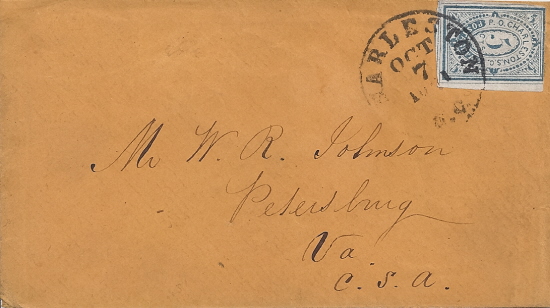 P.O. CHARLESTON, S.C.
5
OCT
7
Mr W. R. Johnson
Petersburg
Va.
C. S. A.